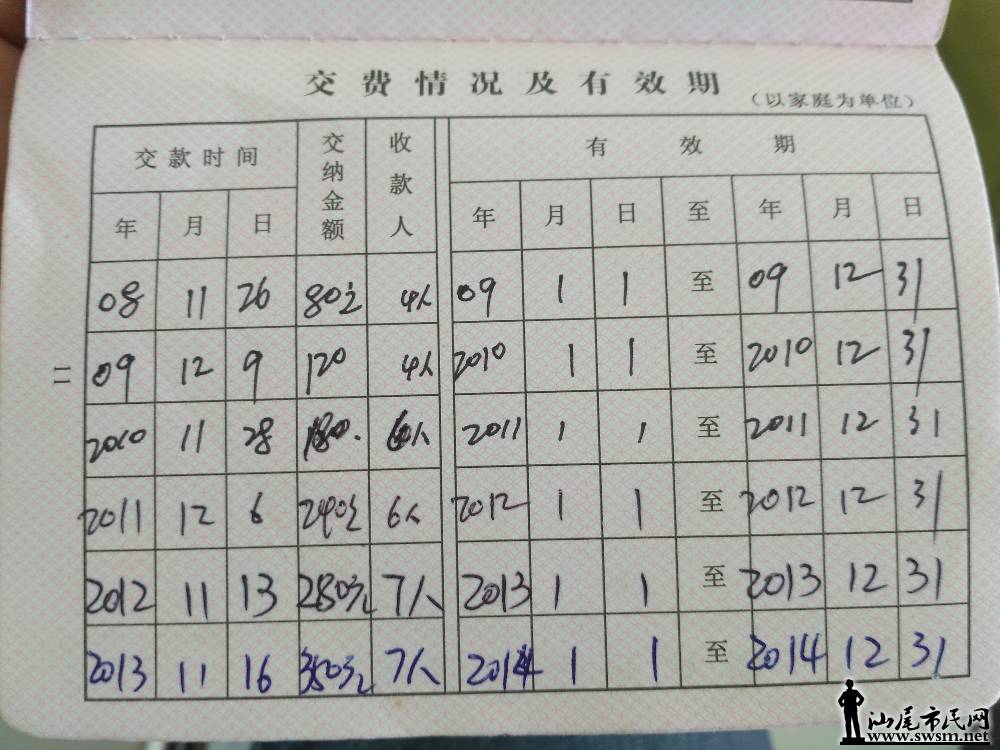 交费情况及有效期
(以家庭为单位)
交款时间 交纳金额 收款人 有效期
年 月 日 年 月 日 至 年 月 日
08 11 26 80元 4人 09 1 1 至 09 12 31
二 09 12 9 120 4人 2010 1 1 至 2010 12 31
2010 11 28 180. 6人 2011 1 1 至 2011 12 31
2011 12 6 240元 6人 2012 1 1 至 2012 12 31
2012 11 13 280元 7人 2013 1 1 至 2013 12 31
2013 11 16 350元 7人 2014 1 1 至 2014 12 31
汕尾市民网
www.swsm.net